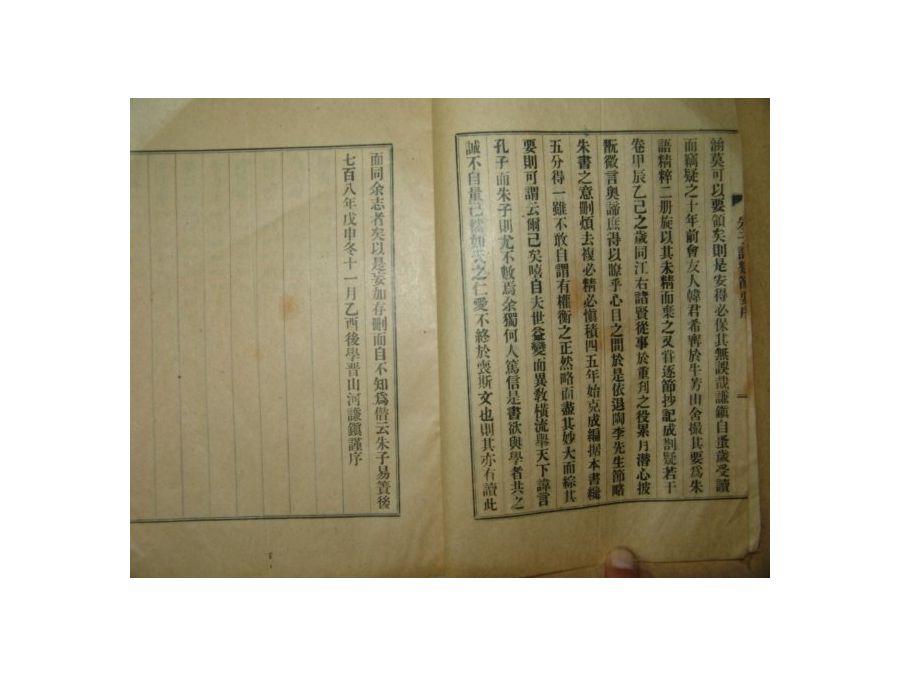 朱子語類節要序
涵莫可以要領矣則是安得必保其無誤哉謙鎭自蚤歲受讀
而竊疑之十年前會友人韓君希寗於牛芳山舍撮其要爲朱
語精粹二册旋以其未精而棄之又嘗逐節抄記成箚疑若干
卷甲辰乙巳之歲同江右諸賢從事於重刋之役累月潛心披
翫微言奧諦庶得以瞭乎心目之間於是依退陶李先生節略
朱書之意刪煩去複必精必愼積四五年始克成編据本書緝
五分得一雖不敢自謂有權衡之正然略而盡其妙大而綜其
要則可謂云爾已矣噫自夫世益變而異敎橫流擧天下諱言
孔子而朱子則尤不數焉余獨何人篤信是書欲與學者共之
誠不自量已儻如天之仁愛不終於喪斯文也則其亦有讀此
而同余志者矣以是妄加存刪而自不知爲僭云朱子易簀後
七百八年戊申冬十一月乙酉後學晋山河謙鎭謹序